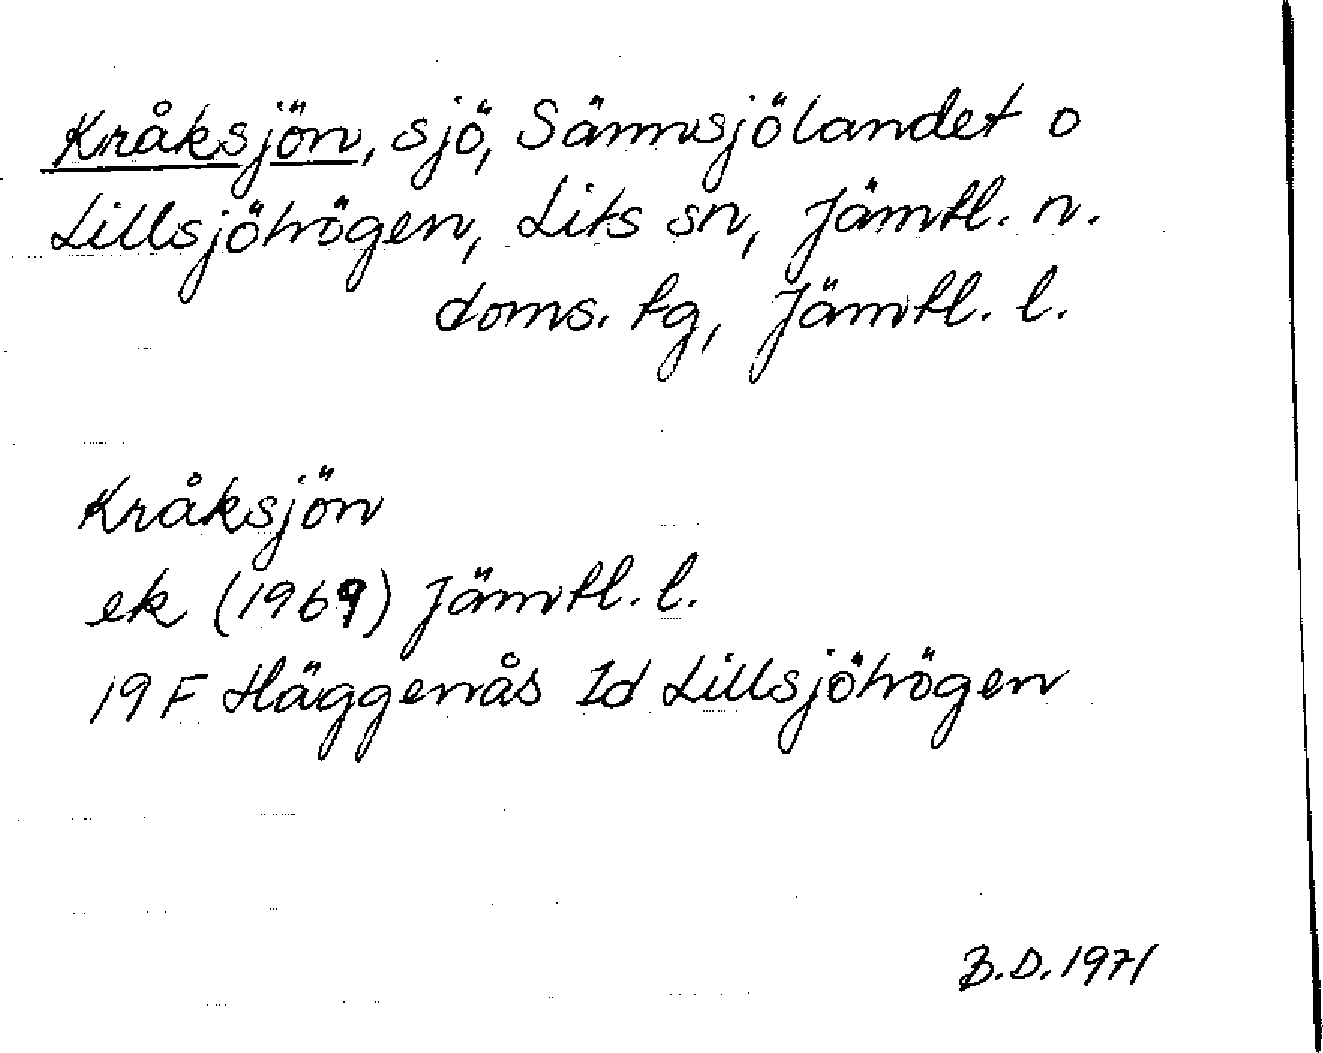 Kråksjön, sjö, Sännsjölandet o
Lillsjöhögen, Lits sn, Jämtl. n.
doms. tg, Jämtl. l.
Kråksjön
ek (1969) Jämtl. l.
19F Häggenås 1d Lillsjöhögen
B.D. 1971